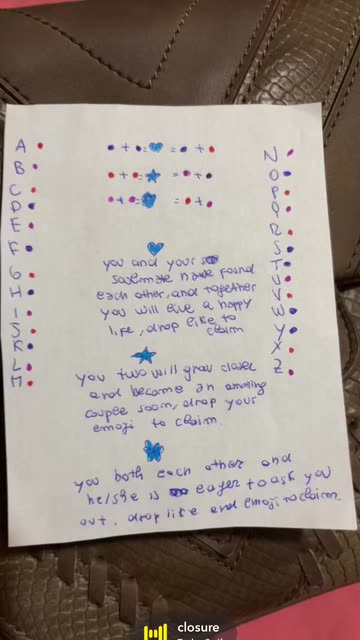 A
B
C
D
E
F
G
H
I
J
K
L
M
• + • = ♥ = • + •
• + • = ★ = • + •
• + • = = • + •
N
O
P
Q
R
S
T
U
V
W
Y
X
Z
you and your
soulmate have found
each other, and together
you will live a happy
life, drop like to
claim
you two will grow closer
and become an amazing
couple soon, drop your
emoji to claim.
you both each other and
he/she is eager to ask you
out. drop like and emoji to claim.
closure